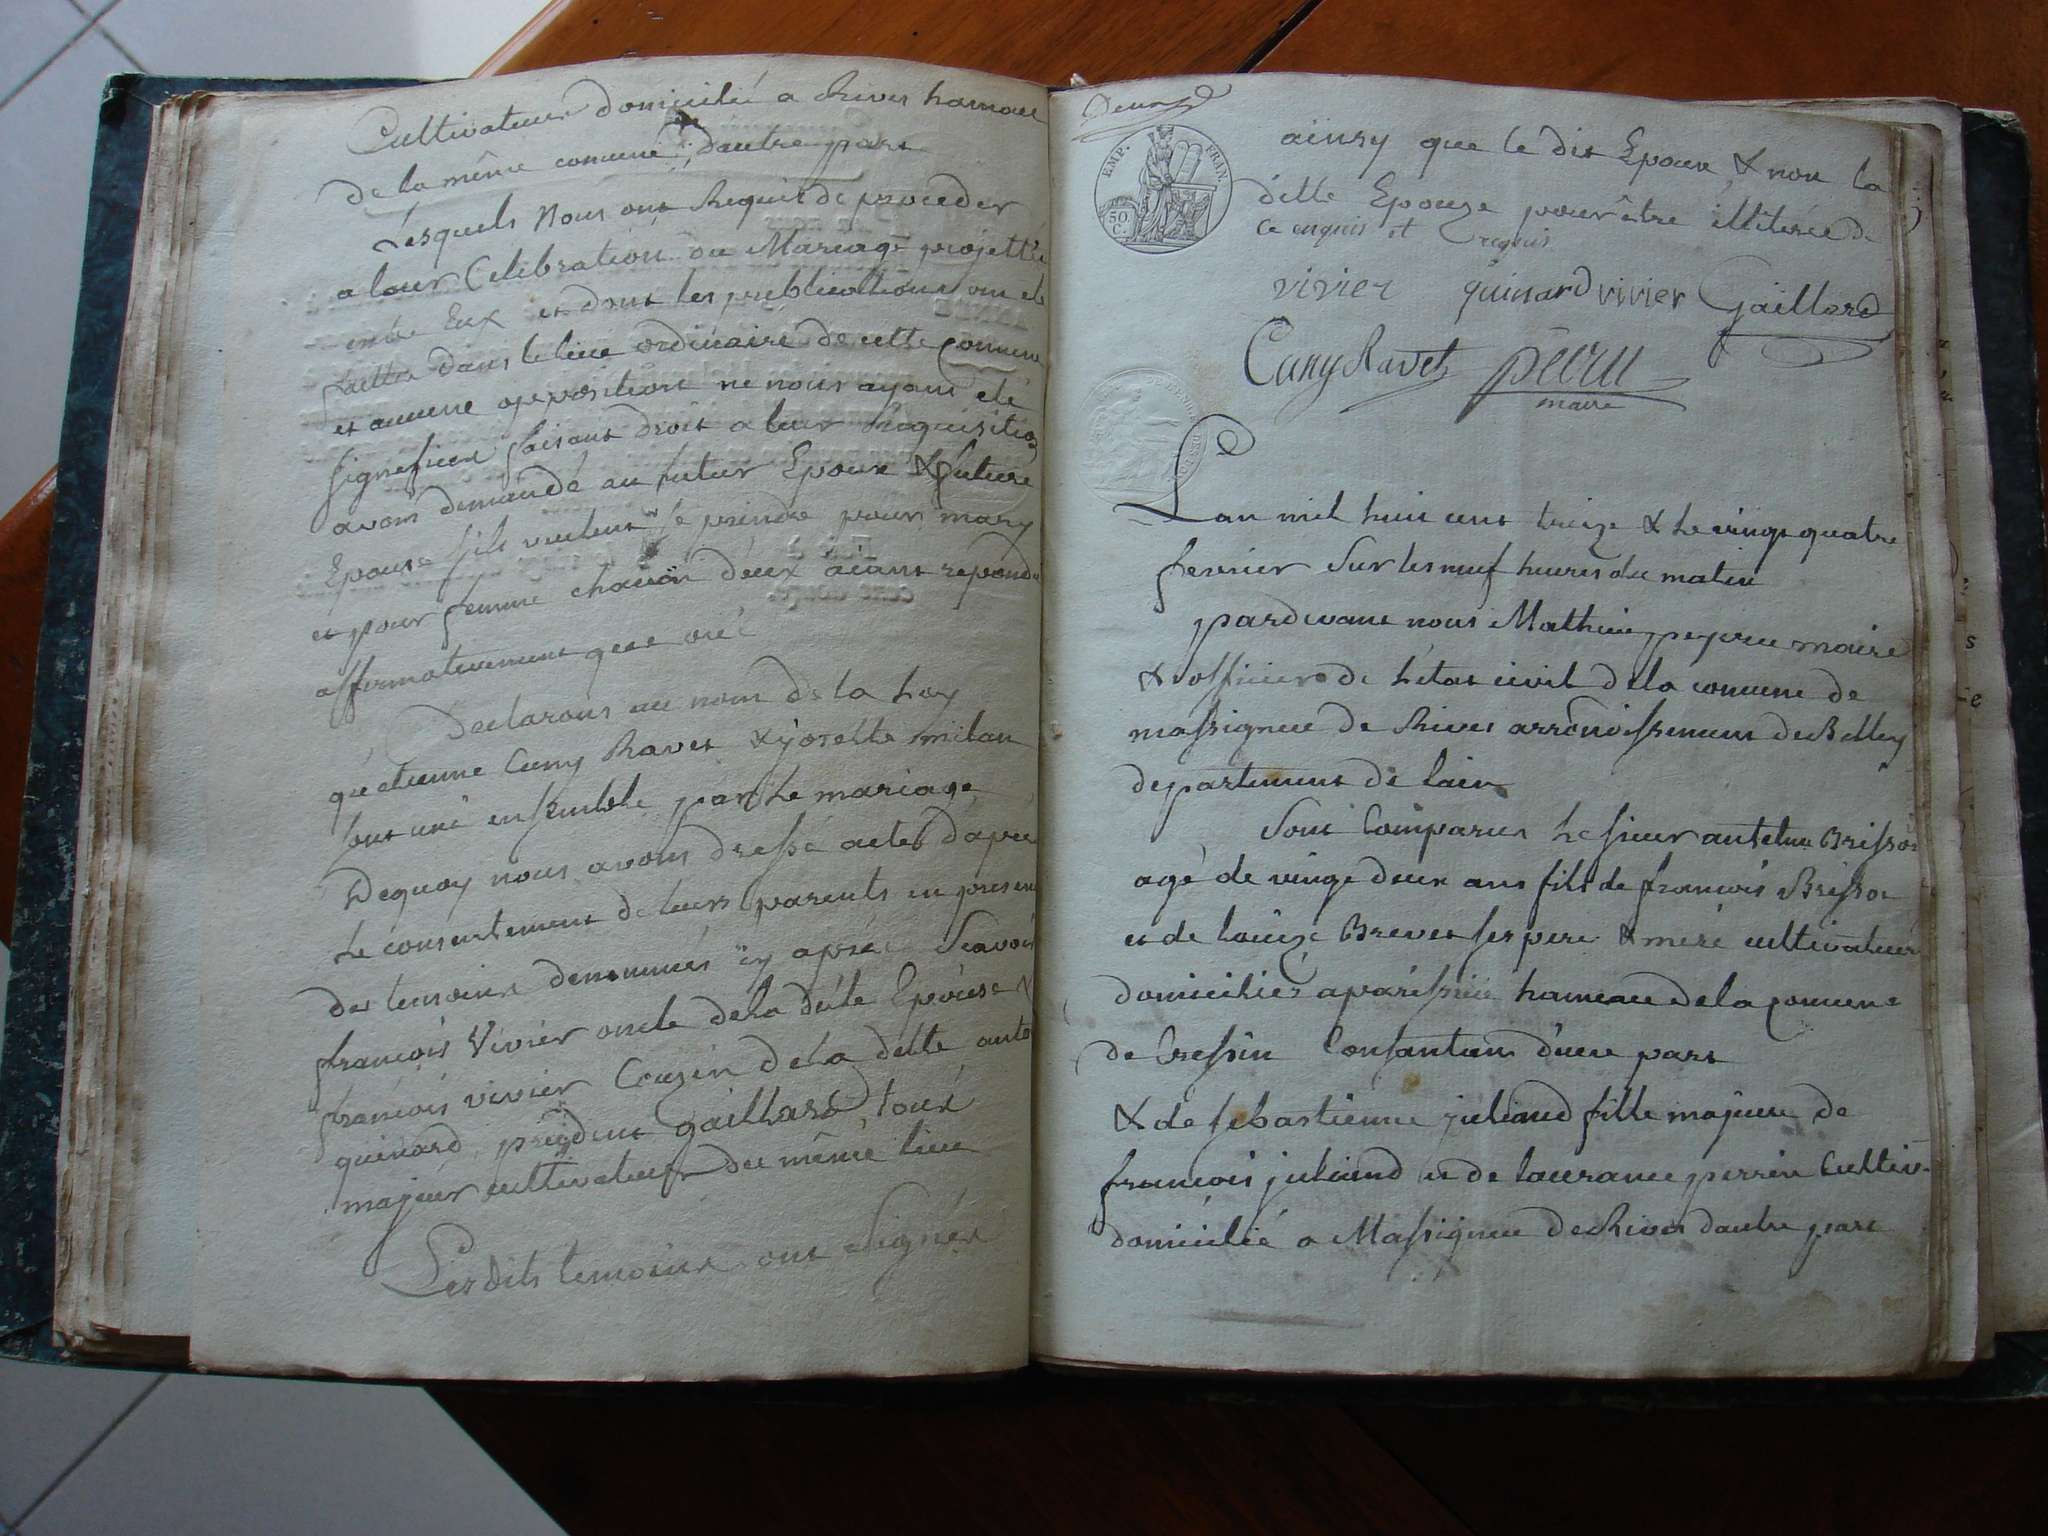 Cultivateur domicilié a Rives hameau
de la même comune, dautre part
Lesquels Nous ont Requit de proceder
a leur Célébration du Mariage projetté
entre Eux et dont les publications ont été
faittes dans le lieu ordinaire de cette Comune
et aucune opposition ne nous ayant été
signefiéé faisant droit a leur Réquisition
avons demandé au futur Epoux & future
Epouse sils veulent se prendre pour mary
et pour femme chacun deux aiant repondu
affermativement que oui
Declarons au nom de la Loy
qu'etienne Cuny Ravet & josette milan
sont uni ensemble par Le mariage
Dequoy nous avons dressé acte daprès
Le consentement de leurs parents en presence
des temoins denommés cy après Scavoir
francois Vivier oncle de la ditte Epouse &
francois vivier Couzin de la ditte ante
quinard gaillard tous
majeur cultivateur du même lieu
Les dits temoins ont Signés
Deux
ainsy que le dit Epoux & non la
ditte Epouze pour être illiterée de
ce enquis et requis
EMP. FRAN.
50 C.
vivier quinard vivier Gaillard
Cuny Ravet peyru
maire
Lan mil huit cent treize & Le vingt quatre
fevrier Sur les neuf heures du matin
pardevant nous Mathieu peyru maire
& officier de L'état civil de la comune de
massignieu de Rives arrondissement de Belley
departement de lain
Sont Comparus Le sieur antelme Brisson
agé de vingt deux ans fils de francois Brisson
et de Louize Brevet ses pere & mere cultivateur
domicilies a parissieu hameau de la Comune
de Cressin Consantant d'une part
& de sebastienne juliand fille majeure de
francois juliand et de laurance perrin Cultiv.
domicilié a Massignieu de Rives dautre part